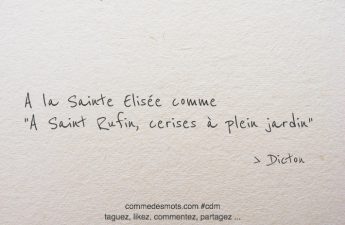 A la Sainte Elisée comme
"A Saint Rufin, cerises à plein jardin"
> Dicton
commedesmots.com #cdm
taguez, likez, commentez, partagez ...